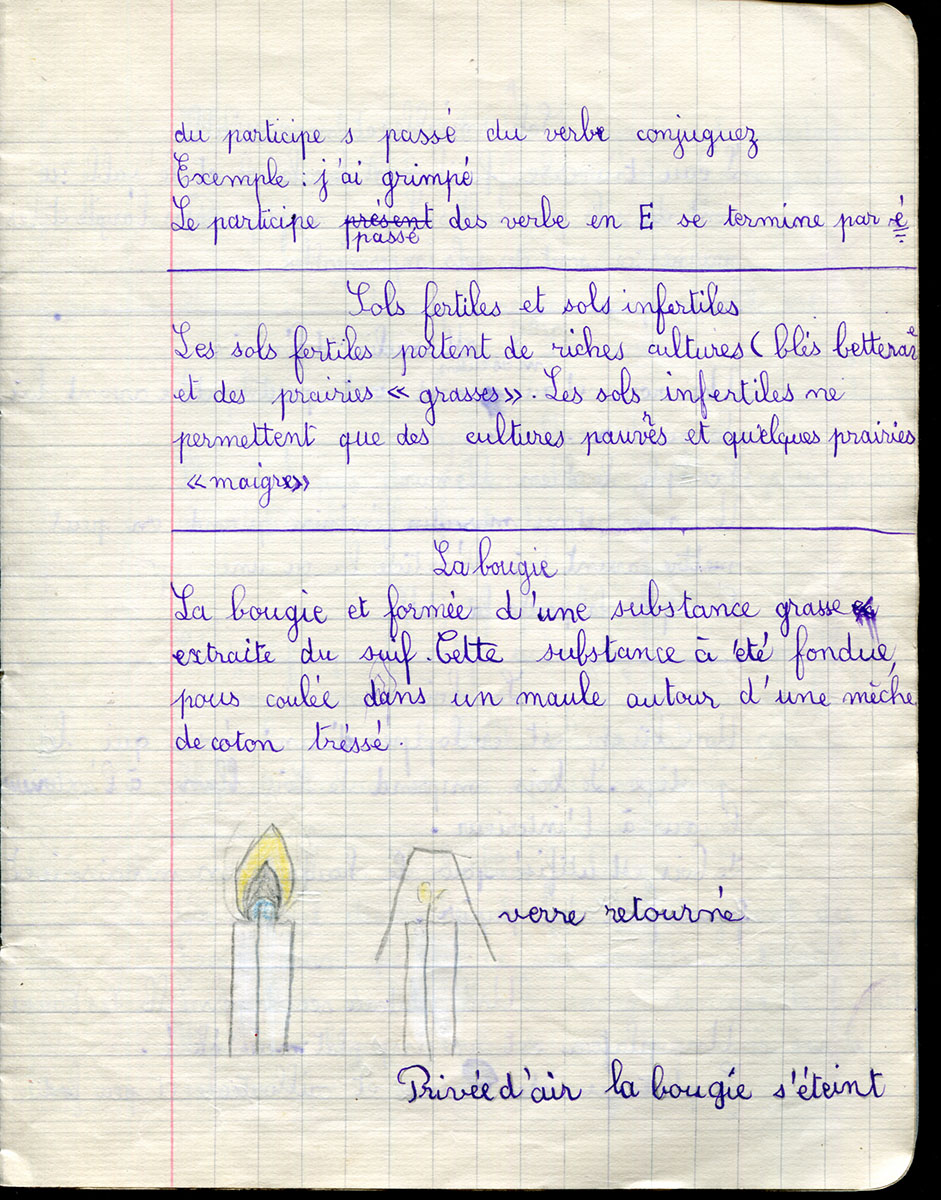 du participe s passé du verbe conjuguez
Exemple : j'ai grimpé
Le participe présent des verbe en E se termine par é
passé
Sols fertiles et sols infertiles
Les sols fertiles portent de riches cultures ( blés betterave
et des prairies « grasses ». Les sols infertiles ne
permettent que des cultures pauvres et quelques prairies
« maigres »
La bougie
La bougie et formée d'une substance grasse
extraite du suif. Cette substance à été fondue,
pous coulée dans un maule autour d'une mèche
de coton tréssé.
verre retourné
Privée d'air la bougie s'éteint